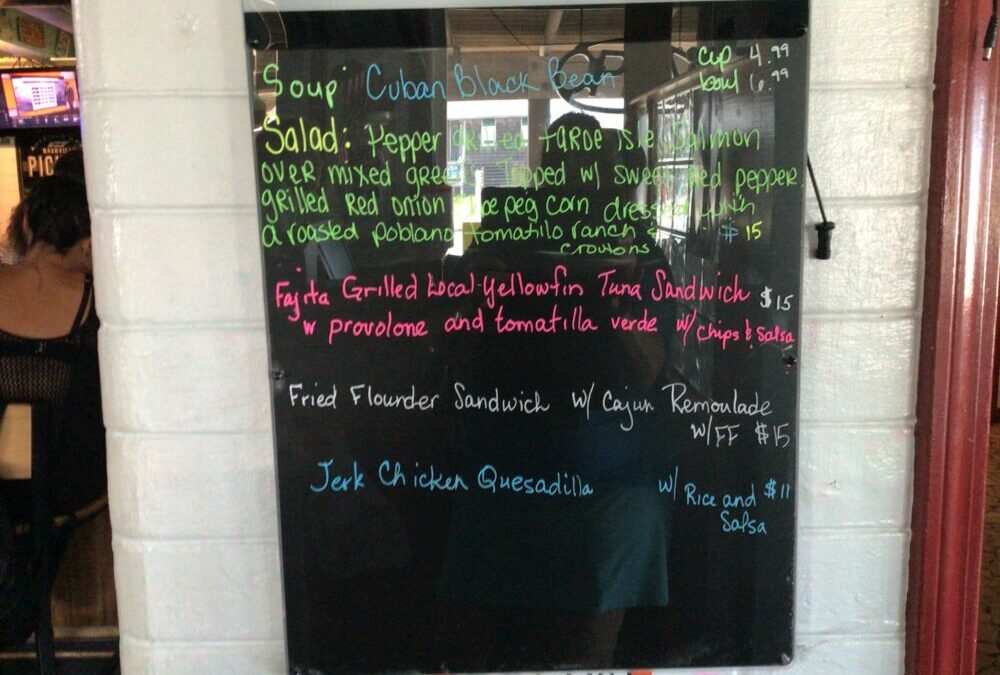 Soup: Cuban Black Bean cup 4.99
bowl 6.99
Salad: Pepper grilled Faroe Isle Salmon
over mixed greens Topped w/ sweet red pepper
grilled Red onion peg corn dressed with
a roasted poblano tomatillo ranch & $15
croutons
Fajita Grilled Local Yellowfin Tuna Sandwich $15
w provolone and tomatilla verde w/ chips & Salsa
Fried Flounder Sandwich w/ Cajun Remoulade
w/ FF $15
Jerk Chicken Quesadilla w/ Rice and $11
Salsa
NASHVILLE
PIC